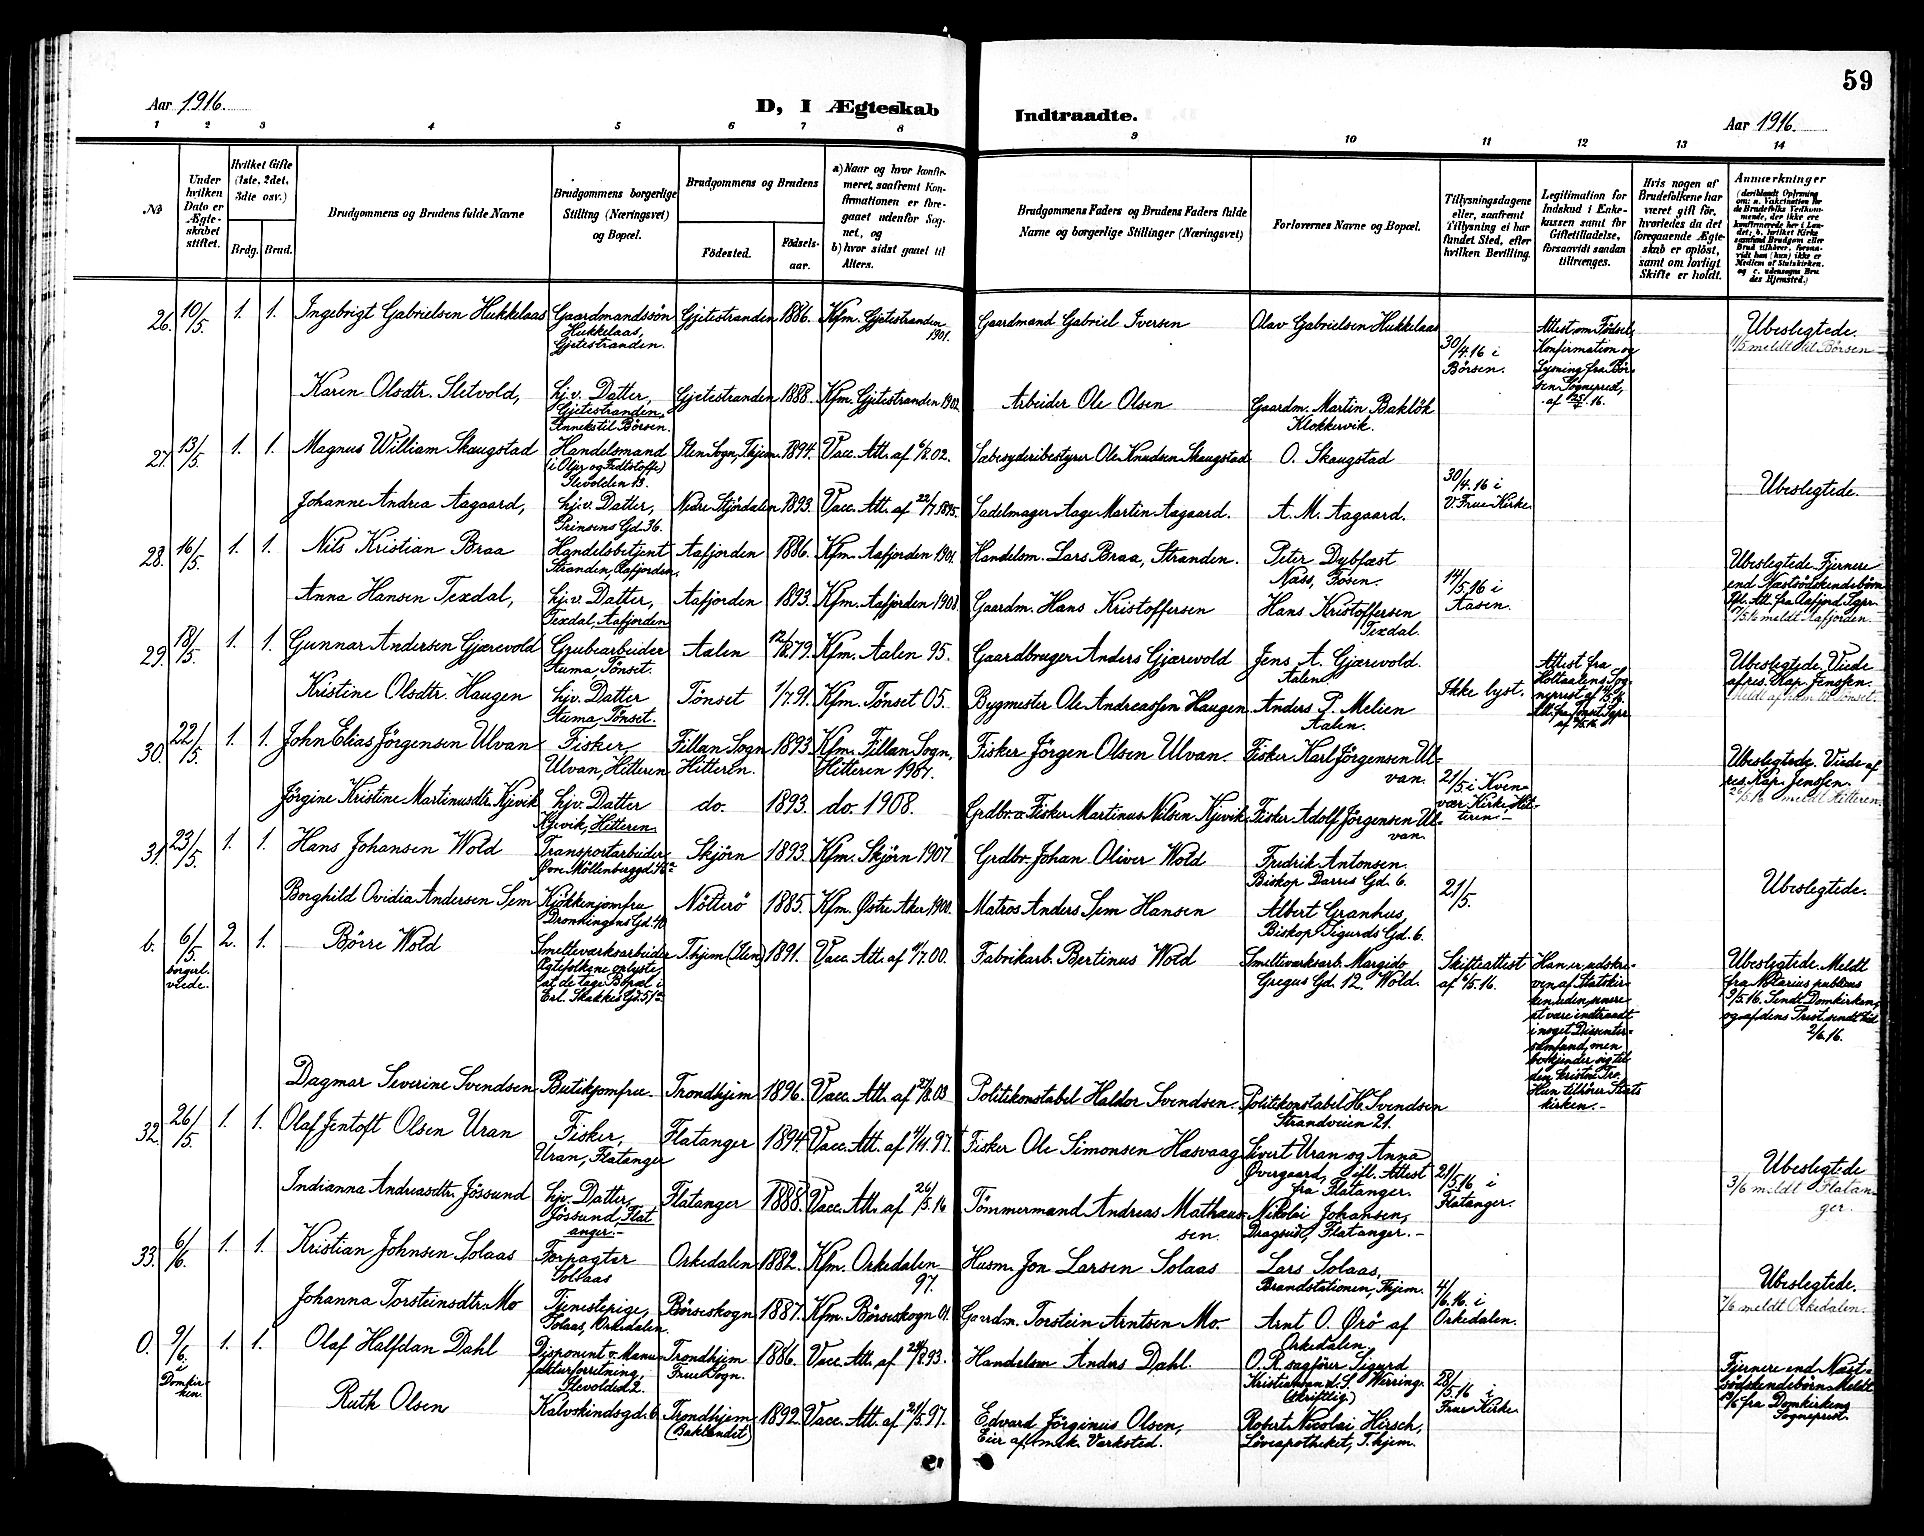 59
Aar 1916.
D, I Ægteskab Indtraadte.
Aar 1916.
1 2 3 4 5 6 7 8 9 10 11 12 13 14
No
Under hvilken Dato er Ægteskabet stiftet.
Hvilket Gifte (1ste, 2det, 3die osv.)
Brdg. Brud.
Brudgommens og Brudens fulde Navne
Brudgommens borgerlige Stilling (Næringsvei) og Bopæl.
Brudgommens og Brudens
Födested. Födselsaar.
a) Naar og hvor konfirmeret, saafremt Konfirmationen er foregaaet udenfor Sognet, og
b) hvor sidst gaaet til Alters.
Brudgommens Faders og Brudens Faders fulde Navne og borgerlige Stillinger (Næringsvei)
Forlovernes Navne og Bopæl.
Tillysningsdagene eller, saafremt Tillysning ei har fundet Sted, efter hvilken Bevilling.
Legitimation for Indskud i Enkekassen samt for Giftetilladelse, forsaavidt saadan tiltrænges.
Hvis nogen af Brudefolkene har været gift för, hvorledes da det foregaaende Ægteskab er oplöst, samt om lovligt Skifte er holdt.
Anmerkninger
26. 10/5. 1. 1. Ingebrigt Gabrielsen Hukkelaas Gaardmandssön Hukkelaas, Gjetestranden. Gjetestranden 1886. Kfm. Gjetestranden 1901. Gaardmand Gabriel Iversen Olav Gabrielsen Hukkelaas 30/4.16 i Börsen. Attest om Födsel Konfirmation og Lysning fra Börsen Sogneprest, af Ubeslegtede. meldt til Börsen
Karen Olsdtr. Sletvold, hj.v. Datter, Gjetestranden, Annekstil Börsen. Gjetestranden 1888. Kfm. Gjetestranden 1902. Arbeider Ole Olsen Gaardm. Martin Baklök Klokkervik.
27. 13/5. 1. 1. Magnus William Skaugstad Handelsmand (i Oljer og Fedtstoffe) Ilevolden 13. Ilen Sogn, Thjem 1894. Vacc. Att. af 6/8.02. Sæbesyderibestyrer Ole Knudsen Skaugstad O. Skaugstad 30/4.16 i V. Frue Kirke. Ubeslegtede.
Johanne Andrea Aagaard, hj.v. Datter, Prinsens Gd. 36. Nedre Stjördalen 1893. Vacc. Att. af 22/7.1895. Sadelmager Aage Martin Aagaard. A. M. Aagaard.
28. 16/5. 1. 1. Nils Kristian Braa Handelsbetjent Stranden, Aafjorden. Aafjorden 1886. Kfm. Aafjorden 1901. Handelsm. Lars Braa, Stranden. Peter Dybfæst Næss, Fosen. 14/5.16 i Aasen. Ubeslegtede Fjernere end Næstsödskendebörn Att. fra Aafjord Sgpr. meldt Aafjorden.
Anna Hansen Texdal, hj.v. Datter, Texdal, Aafjorden Aafjorden 1893. Kfm. Aafjorden 1908. Gaardm. Hans Kristoffersen Hans Kristoffersen Texdal.
29. 18/5. 1. 1. Gunnar Andersen Gjærevold Grubearbeider Auma, Tönset. Aalen 12/8.79. Kfm. Aalen 95. Gaardbruger Anders Gjærevold Jens A. Gjærevold. Aalen. Ikke lyst. Attest fra Holtaalens Sogneprest af Att. fra Tönset Sgpr. Ubeslegtede. Viede af res. Kap. Jenssen. Meldt af dem til Tönset.
Kristine Olsdtr. Haugen hj.v. Datter Auma, Tönset. Tönset 1/7.91. Kfm. Tönset 05. Bygmester Ole Andreassen Haugen Anders P. Melien Aalen.
30. 22/5. 1. 1. John Elias Jörgensen Ulvan Fisker, Ulvan, Hitteren Fillan Sogn Hitteren. 1893. Kfm. Fillan Sogn, Hitteren 1907. Fisker Jörgen Olsen Ulvan. Fisker Karl Jörgensen Ulvan. 21/5. i Kvenvær Kirke, Hitteren. Ubeslegtede. Viede af res. Kap. Jenssen. 26/5.16 meldt Hitteren.
Jörgine Kristine Martinusdtr. Kjevik hj.v. Datter Kjevik, Hitteren do. 1893. do. 1908. Grdbr. o. Fisker Martinus Nilsen Kjevik Fisker Adolf Jörgensen Ulvan.
31. 23/5. 1. 1. Hans Johansen Wold Transportarbeider Övre Möllenberggd. Skjörn 1893. Kfm. Skjörn 1907 Grdbr. Johan Oliver Wold Fredrik Antonsen Biskop Darres Gd. 6. 21/5. Ubeslegtede.
Borghild Ovidia Andersen Sem Kjökkenjomfru Dronningens Gd. 40 Nötterö 1885. Kfm. Östre Aker, 1900. Matros Anders Sem Hansen Albert Granhus, Biskop Sigurds Gd. 6.
b. 6/5. borgerl. viede. 2. 1. Börre Wold Smelteværksarbeider Ægtefolkene oplyste at de tage Bopæl i Erl. Skakkes Gd. T.hjem (Ilen) 1891. Vacc. Att. af 4/7.00. Fabrikarb. Bertinus Wold Smelteværksarb. Margido Gregus Gd. 12. Wold. Skifteattest af 4/5.16. Han er udskreven af Statskirken uden senere at være indtraadt i noget Dissentersamfund, men bekjender sig til den kristne Tro Hun tilhörer Statskirken.- Ubeslegtede. Meldt fra Notarius publicus 9/5.16. Sendt Domkirken, og af dens Prest sendt hid 2/6.16.
Dagmar Severine Svendsen Butikjomfru Trondhjem 1896. Vacc. Att. af 27/8.03 Politikonstabel Haldor Svendsen. Politikonstabel H. Svendsen Strandveien 21.
32. 26/5. 1. 1. Olaf Jentoft Olsen Uran Fisker, Uran, Flatanger Flatanger 1894. Vacc. Att. af 4/11.97. Fisker Ole Simonsen Hasvaag Sivert Uran og Anna Övergaard, ifl. Attest fra Flatanger. 21/5.16 i Flatanger. Ubeslegtede 3/6 meldt Flatanger.
Indianna Andreasdtr. Jössund hj.v. Datter, Jössund, Flatanger.- Flatanger 1888. Vacc. Att. af 26/5.16 Tömmermand Andreas Mathaussen. Nikolai Johansen, Dragseidt, Flatanger.-
33. 6/6. 1. 1. Kristian Johnsen Solaas Forpagter Solaas Orkedalen 1882. Kfm. Orkedalen 97. Husm. Jon Larsen Solaas Lars Solaas, Brandstationen, Thjem. 4/6.16. i Orkedalen. Ubeslegtede. 7/6 meldt Orkedalen.
Johanna Torsteinsdtr. Mo Tjenestepige, Solaas, Orkedalen. Börseskogn 1887. Kfm. Börseskogn 01. Gaardm. Torstein Arntsen Mo. Arnt O. Örö af Orkedalen.
O. 9/6. i Domkirken. 1. 1. Olaf Halfdan Dahl Disponent v. Manufakturforretning, Ilevolden 2. Trondhjem Frue Sogn. 1886. Vacc. Att. af 24/8.93. Handelsm Anders Dahl. O. R. sagförer Sigurd Kristiansen d.S. Werring. (skriftlig) 28/5.16 i Frue Kirke Fjernere end Næstsödskendebörn. Meldt fra Domkirkens Sogneprest.
Ruth Olsen Kalvskindsgd. 6 Trondhjem (Baklandet) 1892. Vacc. Att. af 21/5.97. Edvard Jörginus Olsen, Eier af mek. Værksted. Robert Nicolai Hirsch, Löveapotheket, T.hjem.